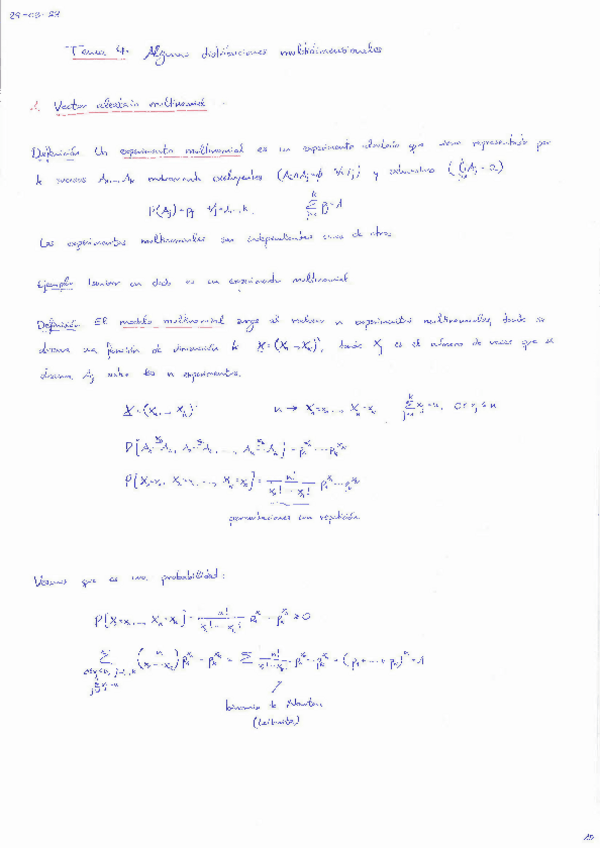 29-03-23
Tema 4. Algunas distribuciones multidimensionales
1. Vector aleatorio multinomial
Definición Un experimento multinomial es un experimento aleatorio que viene representado por
k sucesos A₁...Aₖ mutuamente excluyentes (Aᵢ∩Aⱼ=ϕ ∀i≠j) y
P(Aⱼ)=pⱼ ∀j=1...k. ∑ⱼ₌₁ᵏ pⱼ=1
Los experimentos multinomiales son independientes unos de otros.
Ejemplo lanzar un dado es un experimento multinomial
Definición El modelo multinomial surge al realizar n experimentos multinomiales, donde se
observa una función de dimensión k X=(X₁...Xₖ)', donde Xⱼ es el número de veces que se
observa Aⱼ entre los n experimentos.
X=(X₁...Xₖ)' n → X₁=x₁ ... Xₖ=xₖ ∑ⱼ₌₁ᵏ xⱼ=n, 0≤xⱼ≤n
P[X₁=x₁, X₂=x₂, ..., Xₖ=xₖ] = n!/(x₁!...xₖ!) p₁^x₁...pₖ^xₖ
permutaciones con repetición
Veamos que es una probabilidad:
P[X₁=x₁ ... Xₖ=xₖ] = n!/(x₁!...xₖ!) p₁^x₁...pₖ^xₖ ≥0
(n x₁...xₖ) p₁^x₁...pₖ^xₖ = ∑ n!/(x₁!...xₖ!) p₁^x₁...pₖ^xₖ = (p₁+...+pₖ)ⁿ=1
binomio de Newton
(Leibnitz)